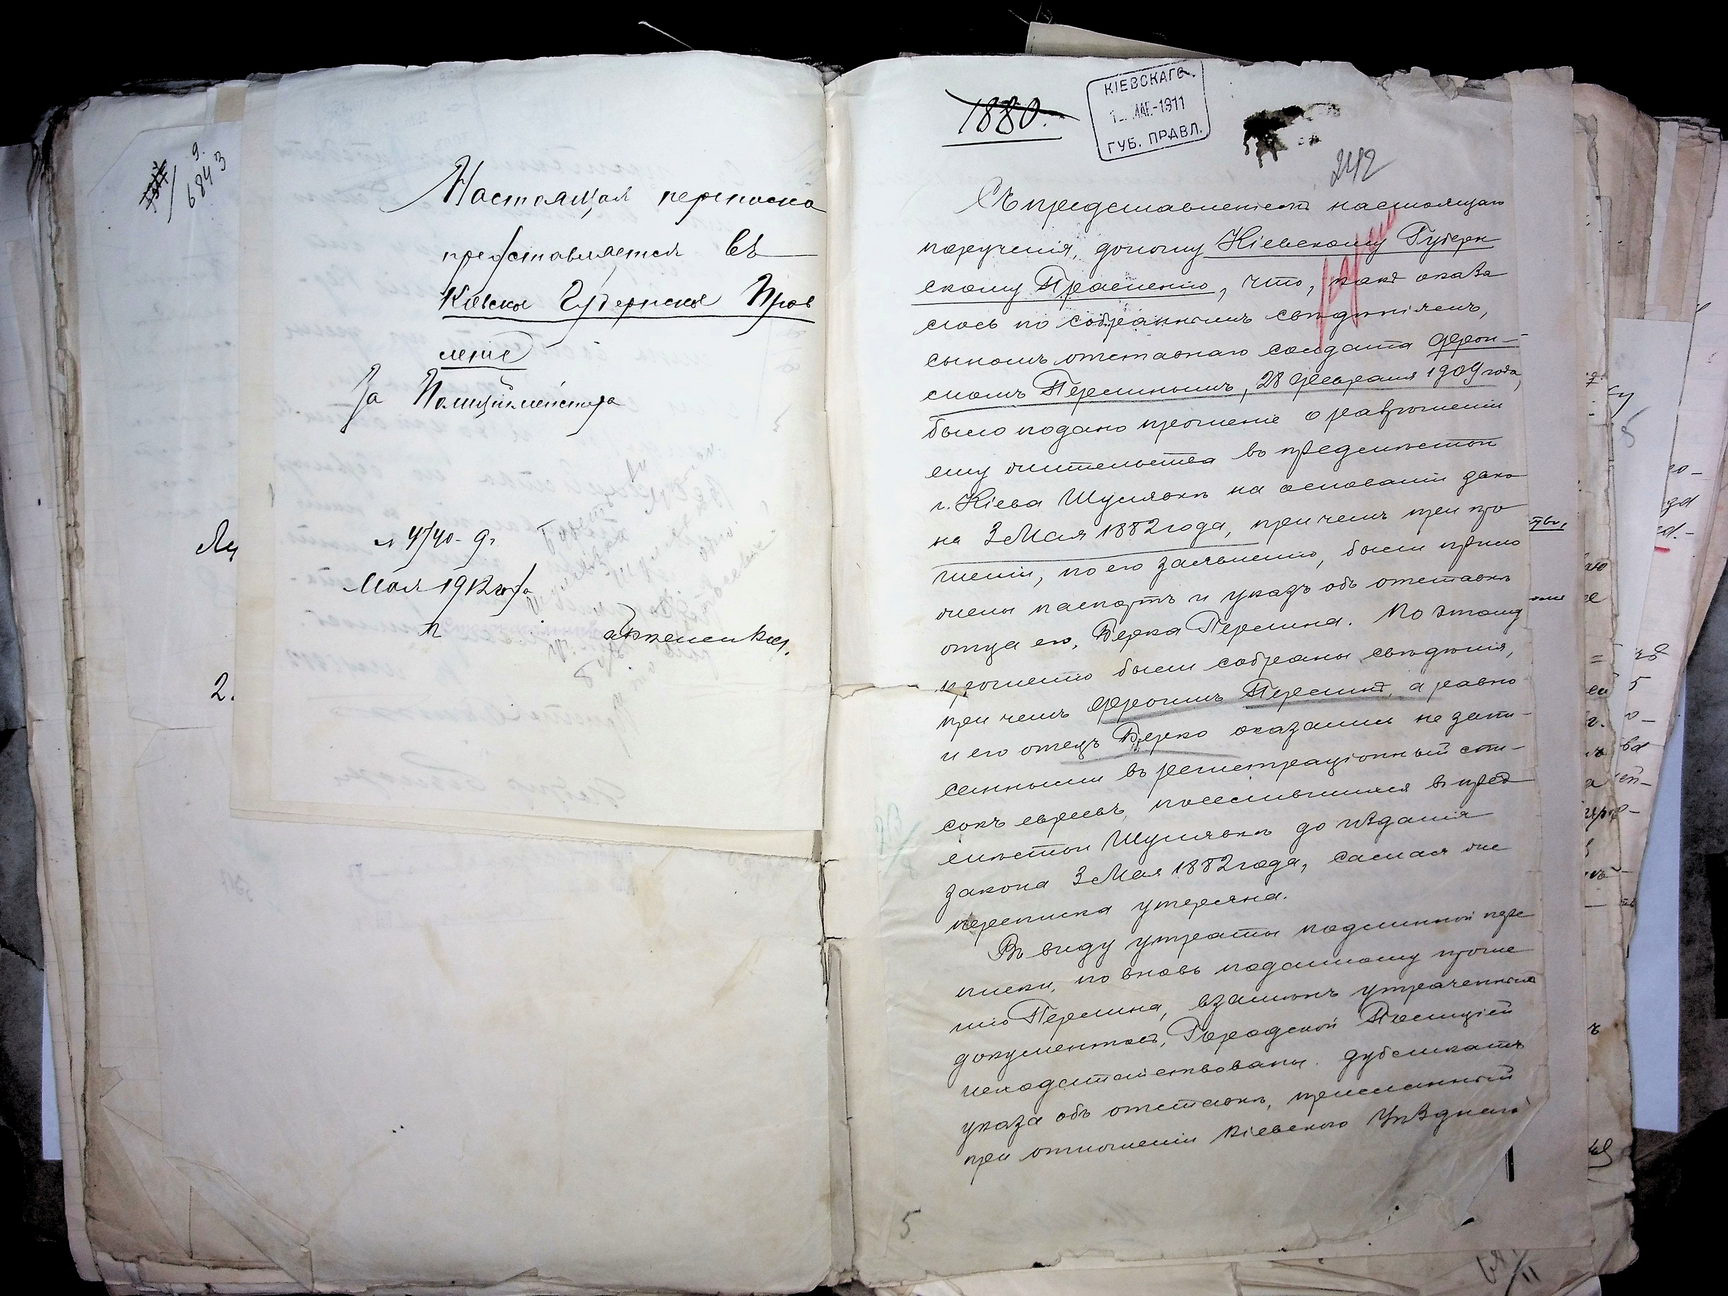 6843
9.
Настоящая переписка
представляется въ
Киевское Губернское Прав
ление
За Полиціймейстера
Мая 1912 года
2.
1880.
КІЕВСКАГО
МАЕ-1911
ГУБ. ПРАВЛ.
242
Съ представленіемъ настоящаго
порученія, доношу Кіевскому Губерн
скому Правленію, что, какъ оказа
лось по собраннымъ свѣдѣніямъ,
сыномъ отставного солдата Фрои-
момъ Перлинымъ, 28 Февраля 1909 года,
было подано прошеніе о разрѣшеніи
ему жительства въ предмѣстьи
г. Кіева Шулявкѣ на основаніи зако
на 3 Мая 1882 года, при чемъ при про
шеніи, по его заявленію, были прило
жены паспортъ и указъ объ отставкѣ
отца его, Берка Перлина. По этому
прошенію были собраны свѣдѣнія,
при чемъ Фроимъ Перлинъ, а равно
и его отецъ Берко оказались не запи-
санными въ регистраціонный спи-
сокъ евреевъ, поселившихся въ пред
мѣстьи Шулявкѣ до изданія
закона 3 Мая 1882 года, самая же
переписка утеряна.
Въ виду утраты подлинной пере
писки, по вновь поданному проше
нію Перлина, взамѣнъ утраченныхъ
документовъ, Городской Полиціей
исходатайствованы дубликатъ
указа объ отставкѣ, присланный
при отношеніи Кіевского Уѣзднаго
5.